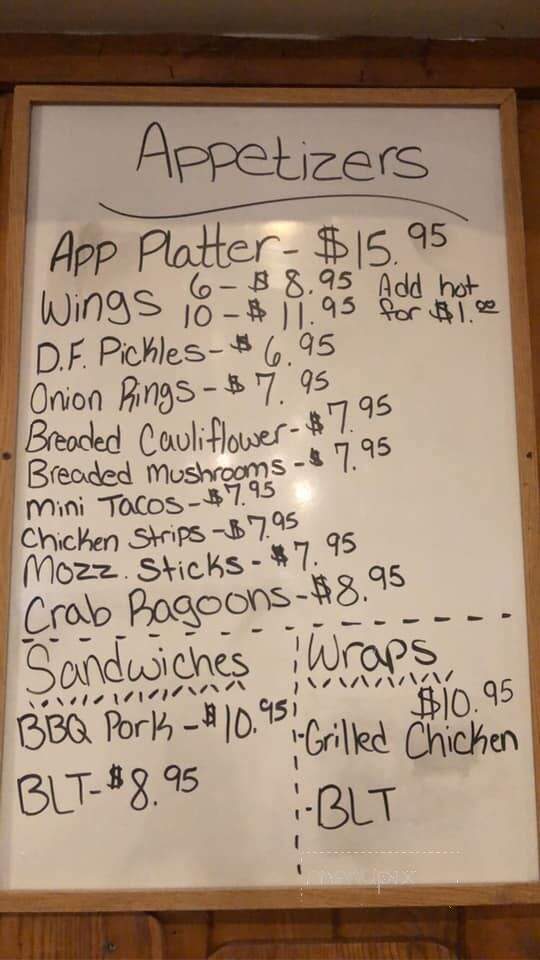 Appetizers
App Platter- $15.95
Wings 6 - $8.95 Add hot
10 - $11.95 for $1.00
D.F. Pickles- $6.95
Onion Rings - $7.95
Breaded Cauliflower- $7.95
Breaded Mushrooms - $7.95
Mini Tacos - $7.95
Chicken Strips - $7.95
Mozz. Sticks - $7.95
Crab Ragoons - $8.95
Sandwiches
BBQ Pork - $10.95
BLT- $8.95
Wraps
$10.95
-Grilled Chicken
-BLT
menupix